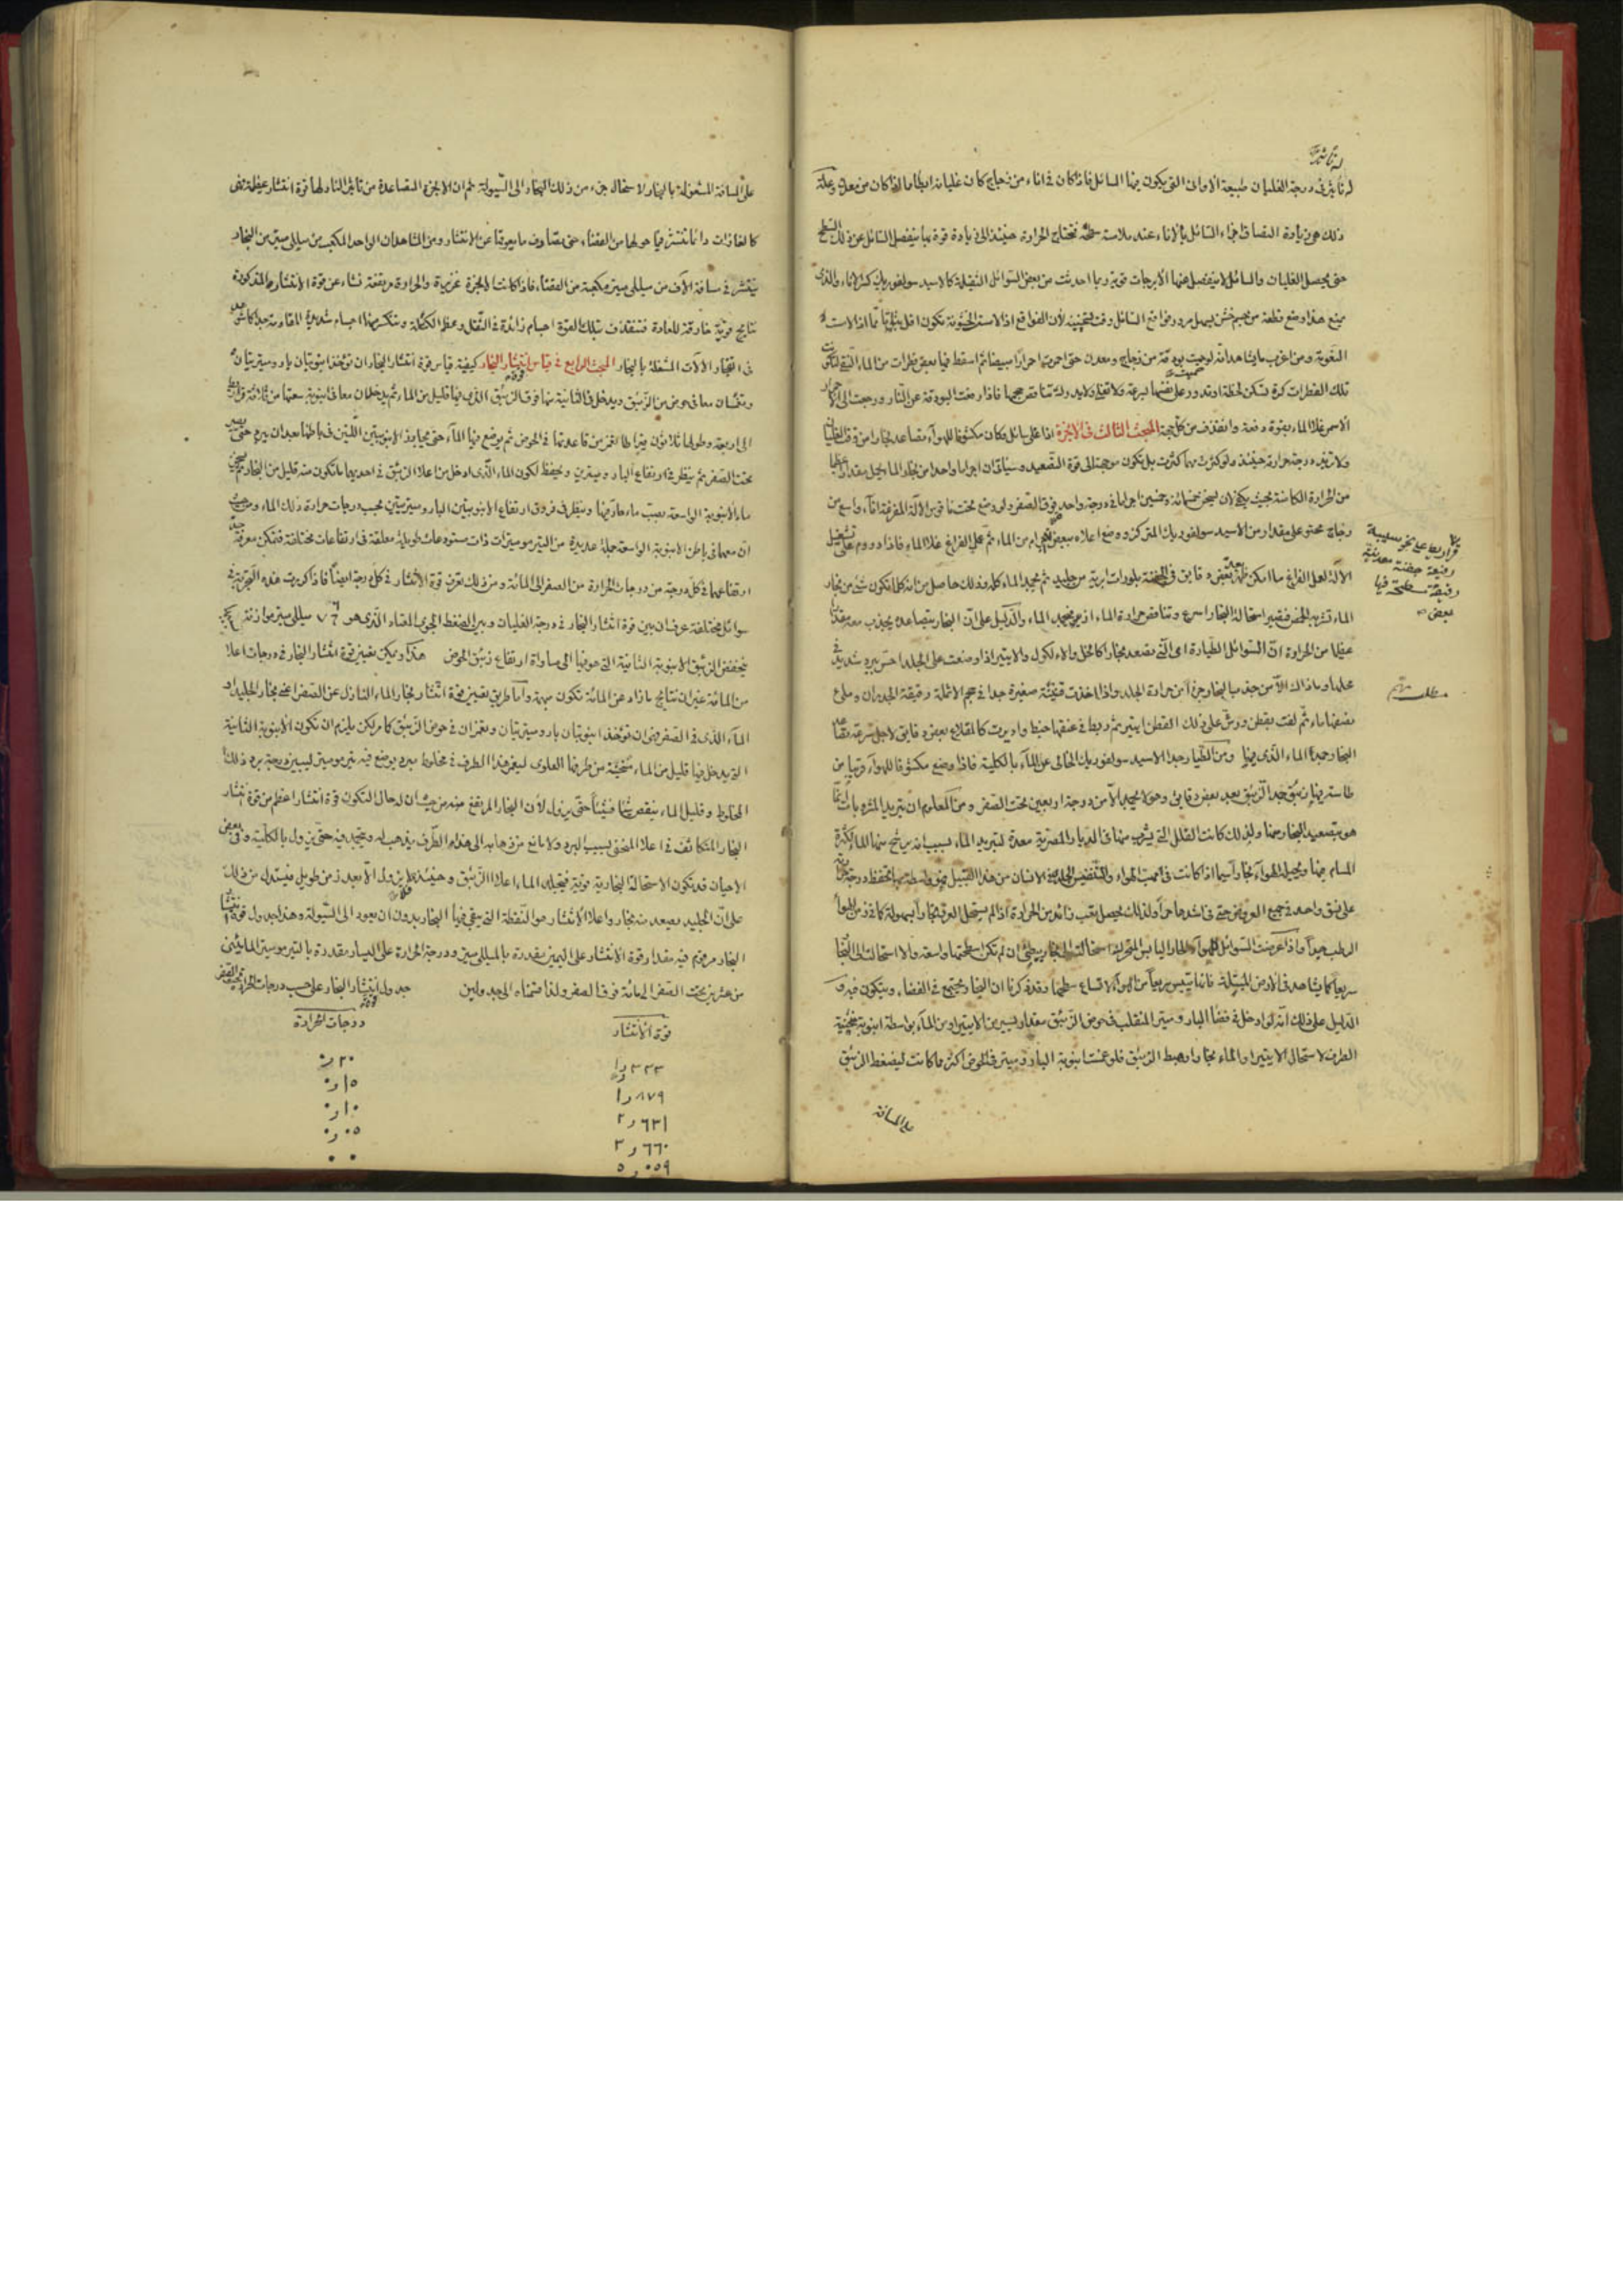 له تأثير في درجة الغليان طبيعة الاواني التي يكون فيها السائل فاذا كان في اناء من زجاج كان غليانه ابطأ مما لو كان من معدن وعلة
ذلك هي زيادة التصاق اجزاء السائل بالاناء عند ملاسة سطحه فتحتاج الحرارة حينئذ الى زيادة قوة بها ينفصل السائل عن ذلك السطح
حتى يحصل الغليان والسائل لا ينفصل عنها الا برجات قوية ربما احدثت من بعض السوائل الثقيلة كالاسيد سولفوريك كسر الاناء والذي
يمنع هذا وضع قطعة من جسم خشن يسهل مرور فواقع السائل وقت تسخينه لأن الفواقع اذ الاستر الخشونة تكون اقل
ومن اغرب ما يشاهد انه لو حميت بودقة من زجاج او معدن حتى احمرت احمرارا مبيضا ثم اسقط فيها بعض قطرات من الماء التقي لتكون
تلك القطرات كرة تسكن لحظة او تدور على نفسها بسرعة ولا تغلي ولا يدرك تناقص حجمها فاذا رفعت البودقة عن النار ورجعت الى الاحمرار
الاسمر غلا الماء بقوة دفعة وانقذف من كل جهة المبحث الثالث في الابخرة اذا غلى سائل وكان مكشوفا للهواء تصاعد بخارا من وقت الغليان
ولا تزيد درجة حرارته حينئذ ولو كثرت مهما كثرت بل تكون موجهة الى قوة التصعيد وسيأتي ان اجراما واحدا من بخار الماء يحمل مقدارا عظيما
من الحرارة الكامنة بحيث يكفي لان يسخن خمسمائة وخمسين اجراما في درجة واحدة فوق الصفر ولو وضع تحت ناقوس الآلة المفرغة اناء واسع من
زجاج محتو على مقدار من الاسيد سولفوريك المتركز ووضع اعلاه بعض اجرام من الماء ثم عملي الفراغ غلا الماء فاذا دووم على تشغيل
الآلة لعمل الفراغ ما امكن ظهر بعد بعض دقايق في الجفنة بلورات ابرية من جليد ثم يجمد الماء كله وذلك حاصل من انه كلما تكون شيء من بخار
الماء تشربه الحمض فتصير استحالة البخار اسرع وتتناقص حرارة الماء اذ يجمد الماء والدليل على ان البخار بتصاعده يجذب معه مقدارا
عظيما من الحرارة ان السوائل الطيارة اعني التي تصعد بخارا كالخل والالكول والايتير اذا وضعت على الجلد احس ببرد شديد في
محلها وما ذاك الا من جذب البخار جزءا من حرارة الجلد واذا اخذت قنينة صغيرة جدا في حجم الانملة رقيقة الجدران وملئ
نصفها ماء ثم لفت بقطن ورش على ذلك القطن ايتير ثم ربط في عنقها خيط واديرت كالمقلاع بعض دقايق لاجل سرعة تصاعد
البخار جمد الماء الذي فيها ومن الطيار جدا الاسيد سولفوريك الخالي عن الماء بالكلية فاذا وضع مكشوفا للهواء قريبا من
طاسة فيها زيبق جمد الزيبق بعد بعض دقايق وهو لا يجمد الا من درجة اربعين تحت الصفر ومن المعلوم ان تبريد المشروبات انما
هو بتصعيد البخار منها ولذلك كانت القلل التي يشرب منها في الديار المصرية معدة لتبريد الماء بسبب انه يرشح منها الماء لكثرة
المسام فيها ويحيله الهواء بخارا لا سيما اذا كانت في مهب الهواء والتنفيس الجلدي الانسان من هذا القبيل فهو واسطة بها تحفظ درجة حرارته
على نسق واحد في جميع العروض حتى في اشدها حرا ولذلك يحصل تعب زائد من الحرارة اذا لم يستحل العرق بخارا بسهولة كما في زمن الهواء
الرطب جوا واذا عرضت السوائل للهواء الحار اليابس المتحرك استحالت بخارا ببطئ ان لم تكن سطحها واسعة والا استحالت الى البخار
سريعا كما يشاهد في الارض المبتلة فانها تيبس سريعا من الهواء لاتساع سطحها وقد ذكرنا ان البخار يجتمع في الفضاء ويتكون فيه
الدليل على ذلك انه لو ادخل في فضاء البارومتر المنقلب في حوض الزيبق مقدار يسير من الايتير او من الماء بواسطة انبوبة منحنية
الطرف لاستحال الايتير او الماء بخارا وهبط الزيبق فلو غمست انبوبة البارومتر في الحوض اكثر مما كانت ليضغط الزيبق
على المسافة
على المسافة المشغولة بالبخار لاستحال جزء من ذلك البخار الى السيولة ثم ان الابخرة المتصاعدة من تأثير النار لها قوة انتشار عظيمة فهي
كالغازات دائما تنتشر فيما حولها من الفضاء حتى تصادف ما يعوقها عن الانتشار ومن المشاهد ان الواحد المكعب من ميللي ميتر من البخار
ينتشر في مسافة الاف من ميللي ميتر مكعبة من الفضاء فاذا كانت الابخرة غزيرة والحرارة مرتفعة نشاء عن قوة الانتشار المذكورة
نتايج قوية خارقة للعادة فتنقذف بتلك القوة اجسام زائدة في الثقل وعظم الكتلة وتتكسر بها اجسام شديدة المقاومة جدا كما شوهد
في انفجار الآلات المشغلة بالبخار المبحث الرابع في قياس قوة انتشار البخار كيفية قياس قوة انتشار البخار ان توخذ انبوبتان بارومتريتان
وتغمسان معا في حوض من الزيبق ويدخل في الثانية منهما فوق الزيبق الذي فيها قليل من الماء ثم يدخلان معا في انبوبة سعتها من ثلاثة قراريط
الى اربعة وطولها ثلاثون قيراطا تغمز من قاعدتها في الحوض ثم يوضع فيها الماء حتى يحاذي الانبوبتين اللتين في باطنها بعد ان يبرد حتى يصير
تحت الصفر ثم ينظر في ارتفاع البارومترين
ماء الانبوبة الواسعة بصب ماء حار فيها وينظر في فروق ارتفاع الانبوبتين البارومتريتين بحسب درجات حرارة ذلك الماء
ان معهما في باطن الانبوبة الواسعة جملة عديدة من التيرمومترات ذات مستودعات طويلة معلقة في ارتفاعات مختلفة فتمكن معرفة
ارتفاعهما في كل درجة من درجات الحرارة من الصفر الى المائة ومن ذلك تعرف قوة الانتشار في كل درجة ايضا فاذا كررت هذه التجربة في
سوائل مختلفة عرف ان بين قوة انتشار البخار في درجة الغليان وبين الضغط الجوي المعتاد الذي هو ٧٦ ميللي ميتر موازنة
ينخفض الزيبق الانبوبة الثانية التي هو فيها الى مساواة ارتفاع زيبق الحوض هكذا ويمكن تعيين قوة انتشار البخار في درجات اعلا
من المائة غير ان نتايج ما زاد عن المائة تكون مبهمة واما طريق تعيين قوة انتشار بخار الماء النازل عن الصفر اعني بخار الجليد او
الماء الذي في الصفر فهي ان توخذ انبوبتان بارومتريتان وتغمران في حوض الزيبق كما مر لكن يلزم ان تكون الانبوبة الثانية
التي يدخل فيها قليل من الماء منحنية من طرفها العلوي ليغمر هذا الطرف في مخلوط مبرد يوضع فيه تيرمومتر ليبين درجة برد ذلك
المخلوط وقليل الماء ينقص شيئا فشيئا حتى يزول لأن البخار المرتفع منه من حيث ان له حال التكون قوة انتشار اعظم من قوة انتشار
البخار المتكاثف في اعلا المنحنى بسبب البرد ولا مانع من ذهابه الى هذا الطرف يذهب له ويتجمد فيه حتى يزول بالكلية وفي بعض
الاحيان قد تكون الاستحالة البخارية قوية فيتجلد الماء اعلا الزيبق وحينئذ فلا يزول الا بعد زمن طويل فيستدل من ذلك
على ان الجليد يصعد منه بخار واعلا الانتشار هو النقطة التي يبقى فيها البخار بدون ان يعود الى السيولة وهذا جدول قوة انتشار
البخار مرقوم فيه مقدار قوة الانتشار على اليمين مقدرة بالميللي ميتر ودرجة الحرارة على اليسار مقدرة بالتيرمومتر المائيني
من عشرين تحت الصفر الى مائة فوق الصفر ولذا قسمناه الى جدولين جدول قوة انتشار البخار على حسب درجات الحرارة تحت الصفر
قوة الانتشار درجات الحرارة
١٫٣٣٣ ٢٠
١٫٨٧٩ ١٥
٢٫٦٣١ ١٠
٣٫٦٦٠ ٠٥
٥٫٠٥٩ ٠٠